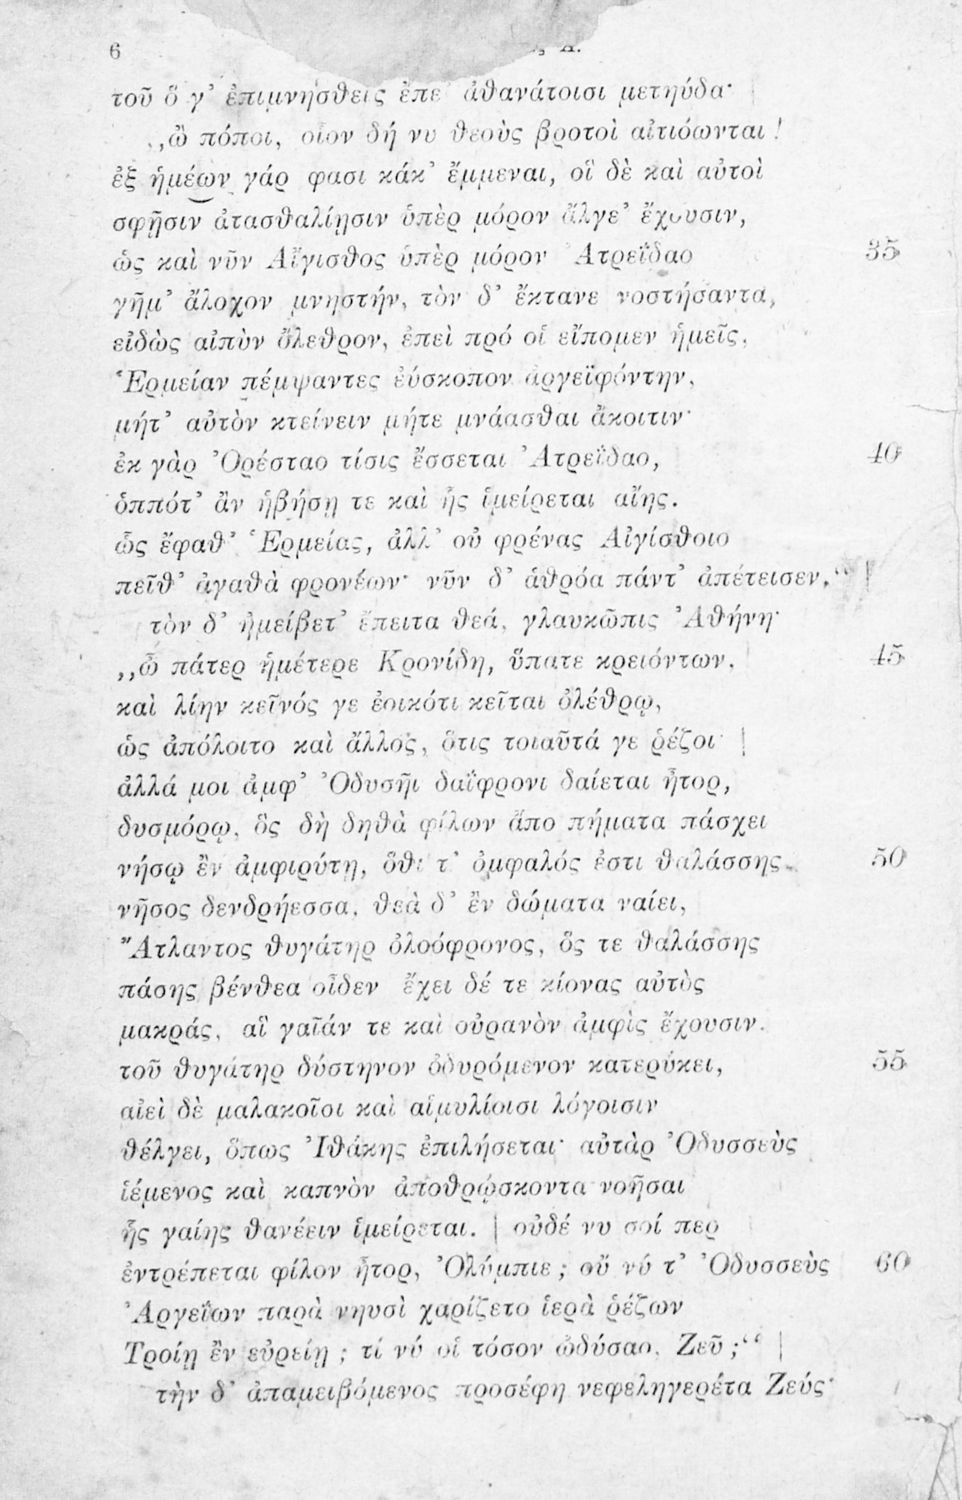 6
τοῦ ὅ γ’ ἐπιμνησθεὶς ἔπε’ ἀθανάτοισι μετηύδα·
„ὢ πόποι, οἷον δή νυ θεοὺς βροτοὶ αἰτιόωνται!
ἐξ ἡμέων γάρ φασι κάκ’ ἔμμεναι, οἳ δὲ καὶ αὐτοὶ
σφῇσιν ἀτασθαλίῃσιν ὑπὲρ μόρον ἄλγε’ ἔχουσιν,
ὡς καὶ νῦν Αἴγισθος ὑπὲρ μόρον Ἀτρεΐδαο 35
γῆμ’ ἄλοχον μνηστήν, τὸν δ’ ἔκτανε νοστήσαντα,
εἰδὼς αἰπὺν ὄλεθρον, ἐπεὶ πρό οἱ εἴπομεν ἡμεῖς,
Ἑρμείαν πέμψαντες ἐύσκοπον ἀργεϊφόντην,
μήτ’ αὐτὸν κτείνειν μήτε μνάασθαι ἄκοιτιν·
ἐκ γὰρ Ὀρέσταο τίσις ἔσσεται Ἀτρεΐδαο, 40
ὁππότ’ ἂν ἡβήσῃ τε καὶ ἧς ἱμείρεται αἴης.
ὣς ἔφαθ’ Ἑρμείας, ἀλλ’ οὐ φρένας Αἰγίσθοιο
πεῖθ’ ἀγαθὰ φρονέων· νῦν δ’ ἁθρόα πάντ’ ἀπέτεισεν.“
τὸν δ’ ἠμείβετ’ ἔπειτα θεά, γλαυκῶπις Ἀθήνη·
„ὦ πάτερ ἡμέτερε Κρονίδη, ὕπατε κρειόντων, 45
καὶ λίην κεῖνός γε ἐοικότι κεῖται ὀλέθρῳ,
ὡς ἀπόλοιτο καὶ ἄλλος, ὅτις τοιαῦτά γε ῥέζοι·
ἀλλά μοι ἀμφ’ Ὀδυσῆι δαΐφρονι δαίεται ἦτορ,
δυσμόρῳ, ὃς δὴ δηθὰ φίλων ἄπο πήματα πάσχει
νήσῳ ἒν ἀμφιρύτῃ, ὅθι τ’ ὀμφαλός ἐστι θαλάσσης. 50
νῆσος δενδρήεσσα, θεὰ δ’ ἒν δώματα ναίει,
Ἄτλαντος θυγάτηρ ὀλοόφρονος, ὅς τε θαλάσσης
πάσης βένθεα οἶδεν ἔχει δέ τε κίονας αὐτὸς
μακράς, αἳ γαῖάν τε καὶ οὐρανὸν ἀμφὶς ἔχουσιν.
τοῦ θυγάτηρ δύστηνον ὀδυρόμενον κατερύκει, 55
αἰεὶ δὲ μαλακοῖσι καὶ αἱμυλίοισι λόγοισιν
θέλγει, ὅπως Ἰθάκης ἐπιλήσεται· αὐτὰρ Ὀδυσσεὺς
ἱέμενος καὶ καπνὸν ἀποθρῴσκοντα νοῆσαι
ἧς γαίης θανέειν ἱμείρεται. | οὐδέ νυ σοί περ
ἐντρέπεται φίλον ἦτορ, Ὀλύμπιε; οὔ νύ τ’ Ὀδυσσεὺς 60
Ἀργεΐων παρὰ νηυσὶ χαρίζετο ἱερὰ ῥέζων
Τροίῃ ἒν εὐρείῃ; τί νύ οἱ τόσον ὠδύσαο, Ζεῦ;“
τὴν δ’ ἀπαμειβόμενος προσέφη νεφεληγερέτα Ζεύς·